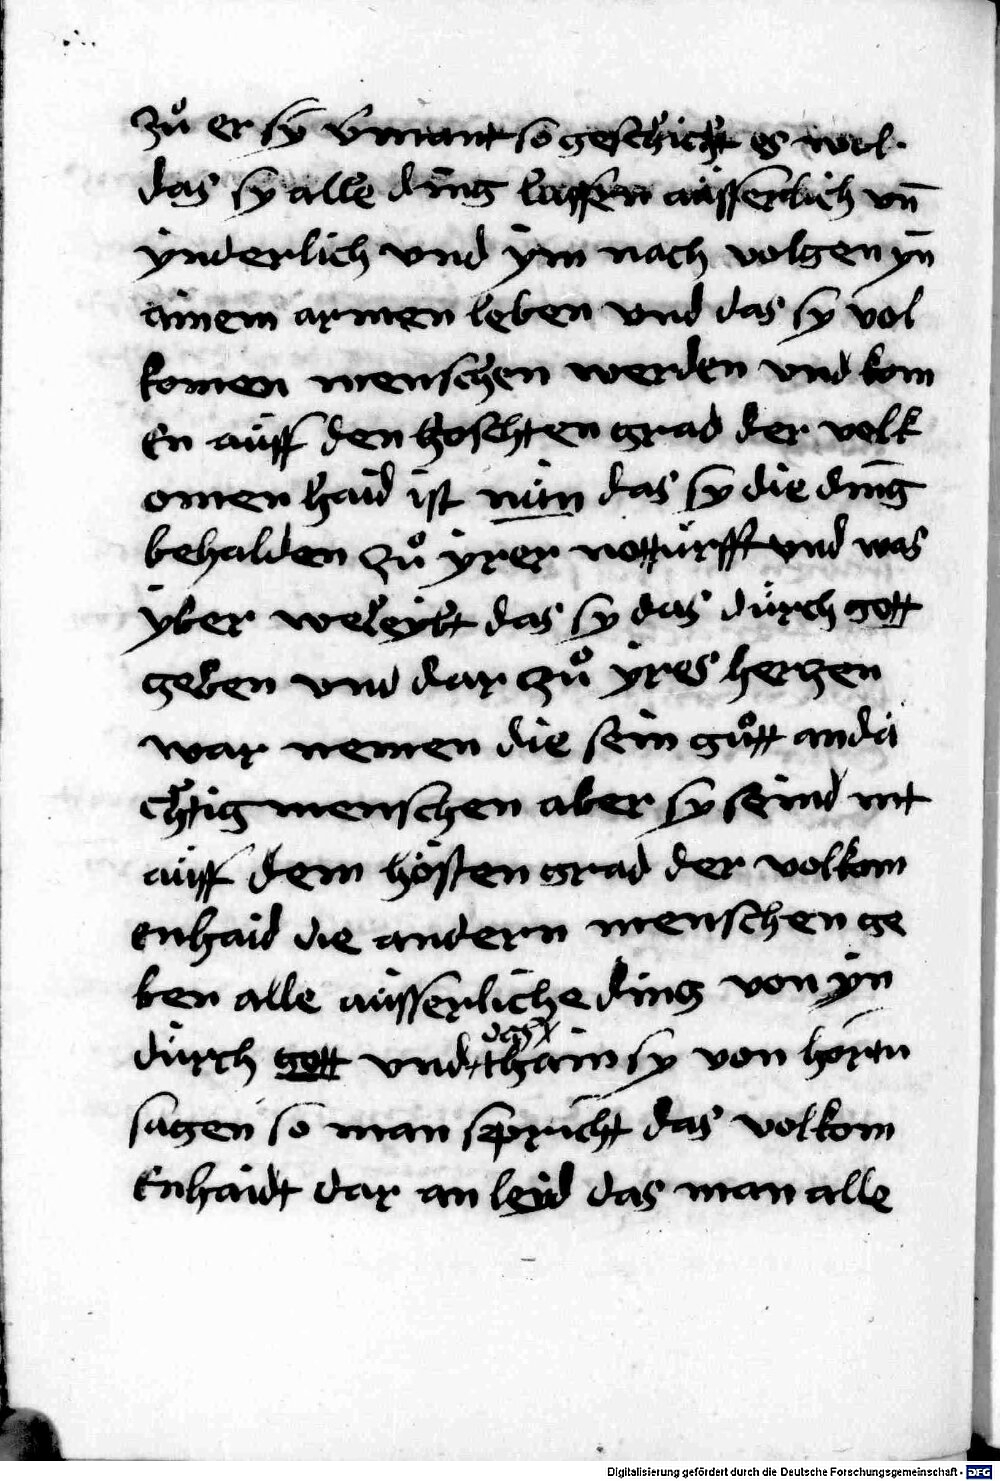 zuͦ er sÿ v̄mant so geschicht es wol·
das sy alle ding lassen aüsserlich vn̄
ÿnderlich vnd ÿm nach volgen yn̄
ainem armen leben vnd das sy vol
komen menschen werden vnd kom
en aüff den hoschten grad der volk
omen haid ist nün das sy die ding
behalden zuͦ ÿrer nottürfft vnd was
ÿber weleybt das sy das dürch gott
geben vnd dar zuͦ ÿres herzen
war nemen die sein guͦtt andä
chtig menschen aber sy seind nit
aüff dem hösten grad der volkom
enhaid die andern menschen ge
ben alle aüsserliche ding von ÿn
dürch gott vnd das thain sy von hörn̄
sagen so man spricht das volkom
enhaidt dar an leyd das man alle
Digitalisierung gefördert durch die Deutsche Forschungsgemeinschaft - DFG